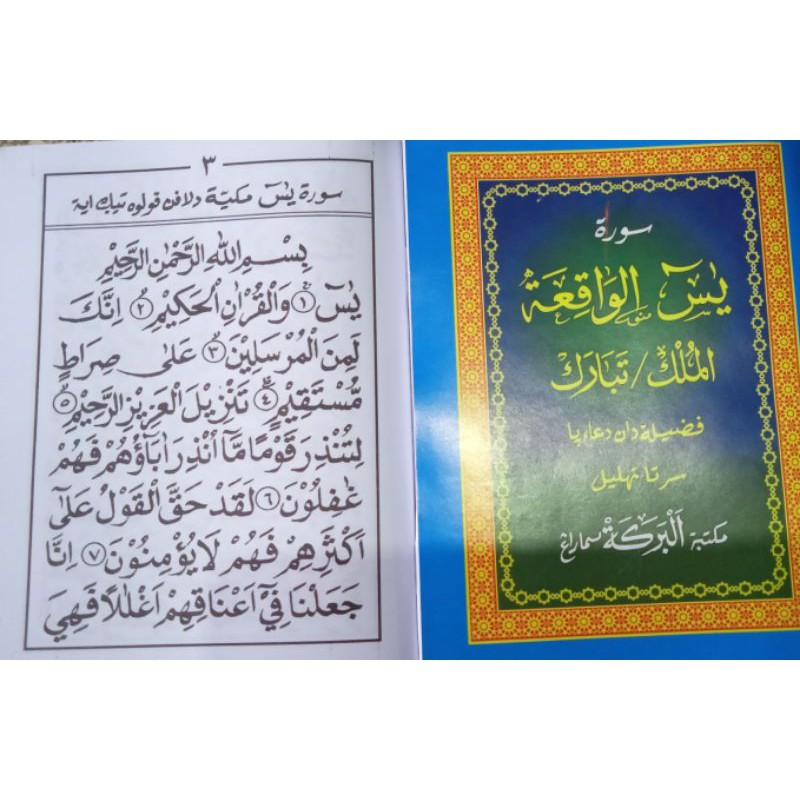 ٣
سورة يٰسٓ مكية دلافن ڤولوه تيݢ اية
بِسْمِ اللهِ الرَّحْمٰنِ الرَّحِيْمِ
يٰسٓ ۝١ وَالْقُرْاٰنِ الْحَكِيْمِ ۝٢ اِنَّكَ
لَمِنَ الْمُرْسَلِيْنَ ۝٣ عَلٰى صِرَاطٍ
مُّسْتَقِيْمٍ ۝٤ تَنْزِيْلَ الْعَزِيْزِ الرَّحِيْمِ ۝٥
لِتُنْذِرَ قَوْمًا مَّآ اُنْذِرَ اٰبَآؤُهُمْ فَهُمْ
غٰفِلُوْنَ ۝٦ لَقَدْ حَقَّ الْقَوْلُ عَلٰٓى
اَكْثَرِهِمْ فَهُمْ لَا يُؤْمِنُوْنَ ۝٧ اِنَّا
جَعَلْنَا فِيْٓ اَعْنَاقِهِمْ اَغْلٰلًا فَهِيَ
سورة
يٰسٓ الْوَاقِعَة
الْمُلْك / تَبَارَكَ
فضيلة دان دعاءڽا
سرتا تهليل
مكتبة اَلْبَرَكَةْ سماراڠ